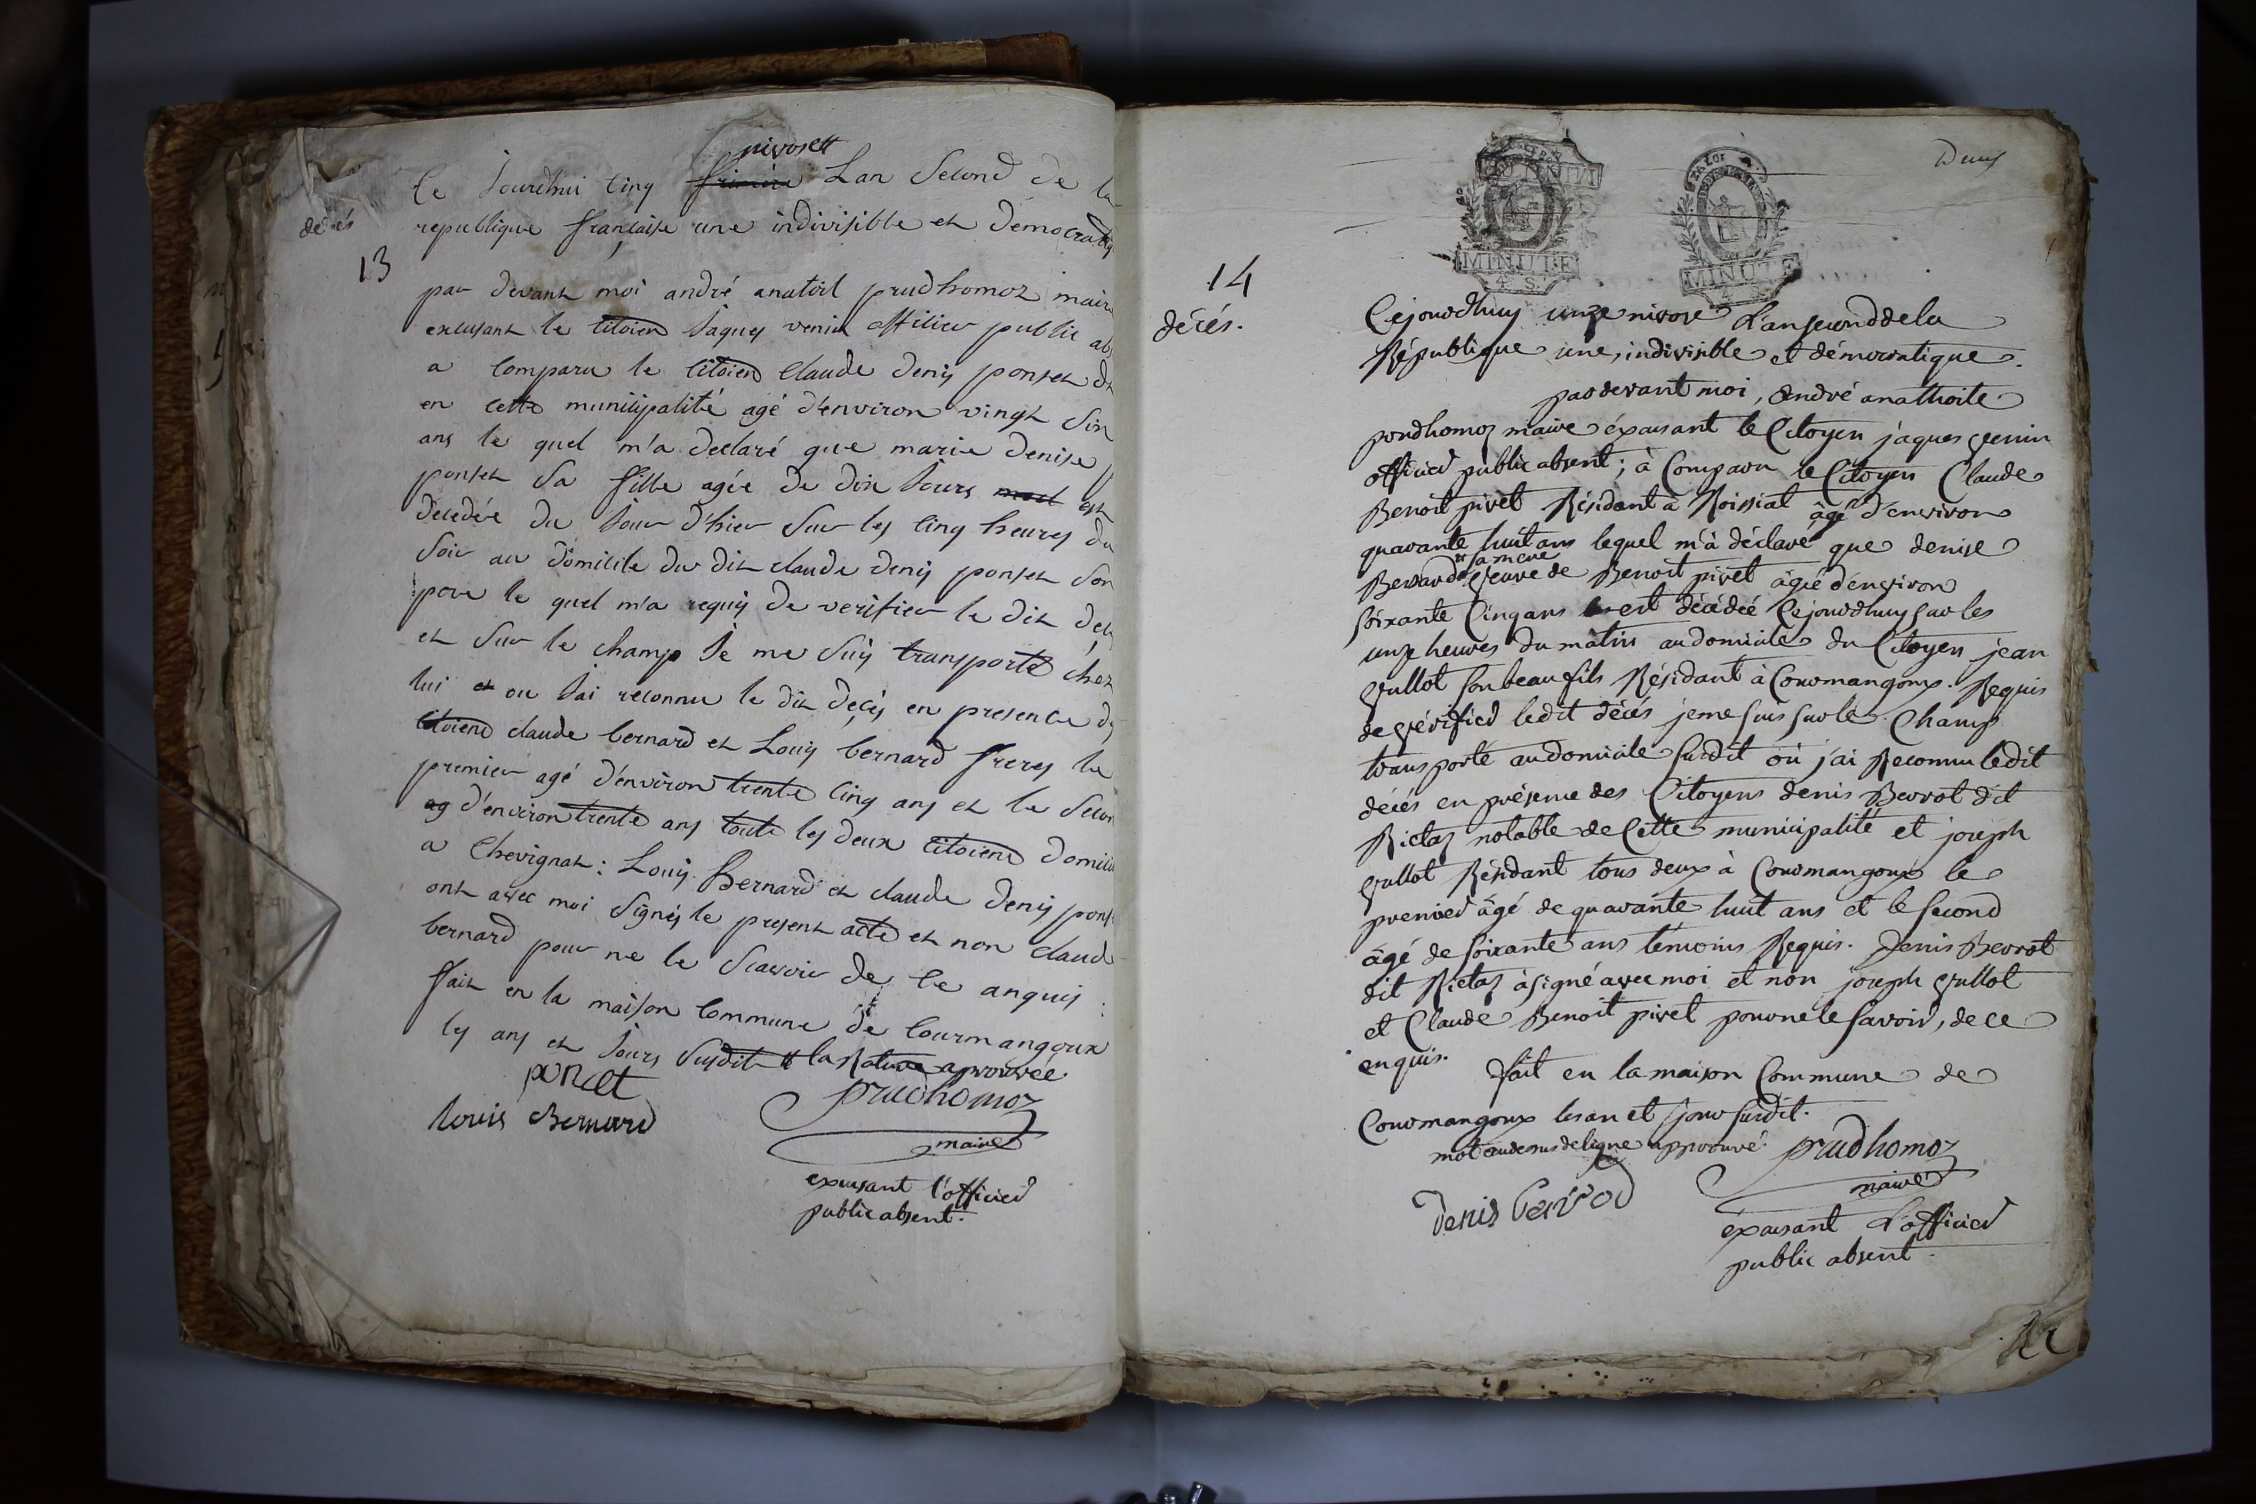 nivose
Ce Jourdhui cinq frimere Lan Second de la
decés
republique française une indivisible et democratiq
13
par devant moi andré anatoil prudhomoz maire
excusant le citoien Jaques venin officier public abs
a comparu le citoien Claude denis ponset d
en cette municipalité agé d'environ vingt Six
ans le quel m'a declaré que marie denise
ponset Sa fille agée de dix Jours mort est
decedée du Jour d'hier Sur les cinq heures du
Soir au domicile du dit claude denis ponset Son
pere le quel m'a requis de verifier le dit dec
et Sur le champ Je me Suis transporté chez
lui et ou Jai reconnu le dit deçés en presence d
citoiens claude bernard et Louis bernard freres le
premier agé d'environ trente cinq ans et le Secon
ag d'environ trente ans toute les deux citoiens domicil
a Chevignat : Louis Bernard et claude denis pons
ont avec moi Signés le present acte et non claude
bernard pour ne le Scavoir de ce anquis :
fait en la maison commune de Courmangoux
les ans et Jours Susdit la Rature aprouvée
ponset prudhomoz
louis Bernard maire
excusant l'officier
public absent.
Deux
MINUTE
4 S.
MINUTE
14
décés.
Cejourdhuy unze nivose L'an second de la
République une, indivisible et démocratique.
pardevant moi, André anathoile
prudhomoz maire éxcusant le Citoyen jaques Venin
officier public absent; à Comparu le Citoyen Claude
Benoit pivet Résidant à Roissiat âgé d'environ
quarante huit ans lequel m'à déclaré que denise
sa mere
Berrard veuve de Benoit pivet âgée d'environ
soixante Cinq ans est décédée Cejourdhuy sur les
unze heures du matin au domicile du Citoyen jean
Vullot son beau fils Résidant à Courmangoux. Requis
de vérifier ledit décés je me suis sur le Champ
transporté au domicile susdit où j'ai Reconnu ledit
décés en présence des Citoyens denis Berrot dit
Rictaz notable de Cette municipalité et joseph
Vullot Résidant tous deux à Courmangoux le
premier âgé de quarante huit ans et le second
âgé de soixante ans témoins Requis. Denis Berrot
dit Rictaz à signé avec moi et non joseph Vullot
et Claude Benoit pivet pour ne le savoir, de ce
enquis. fait en la maison Commune de
Courmangoux les an et jour susdit.
mot audessus de ligne approuvé. prudhomoz
denis berrod maire
éxcusant L'officier
public absent.